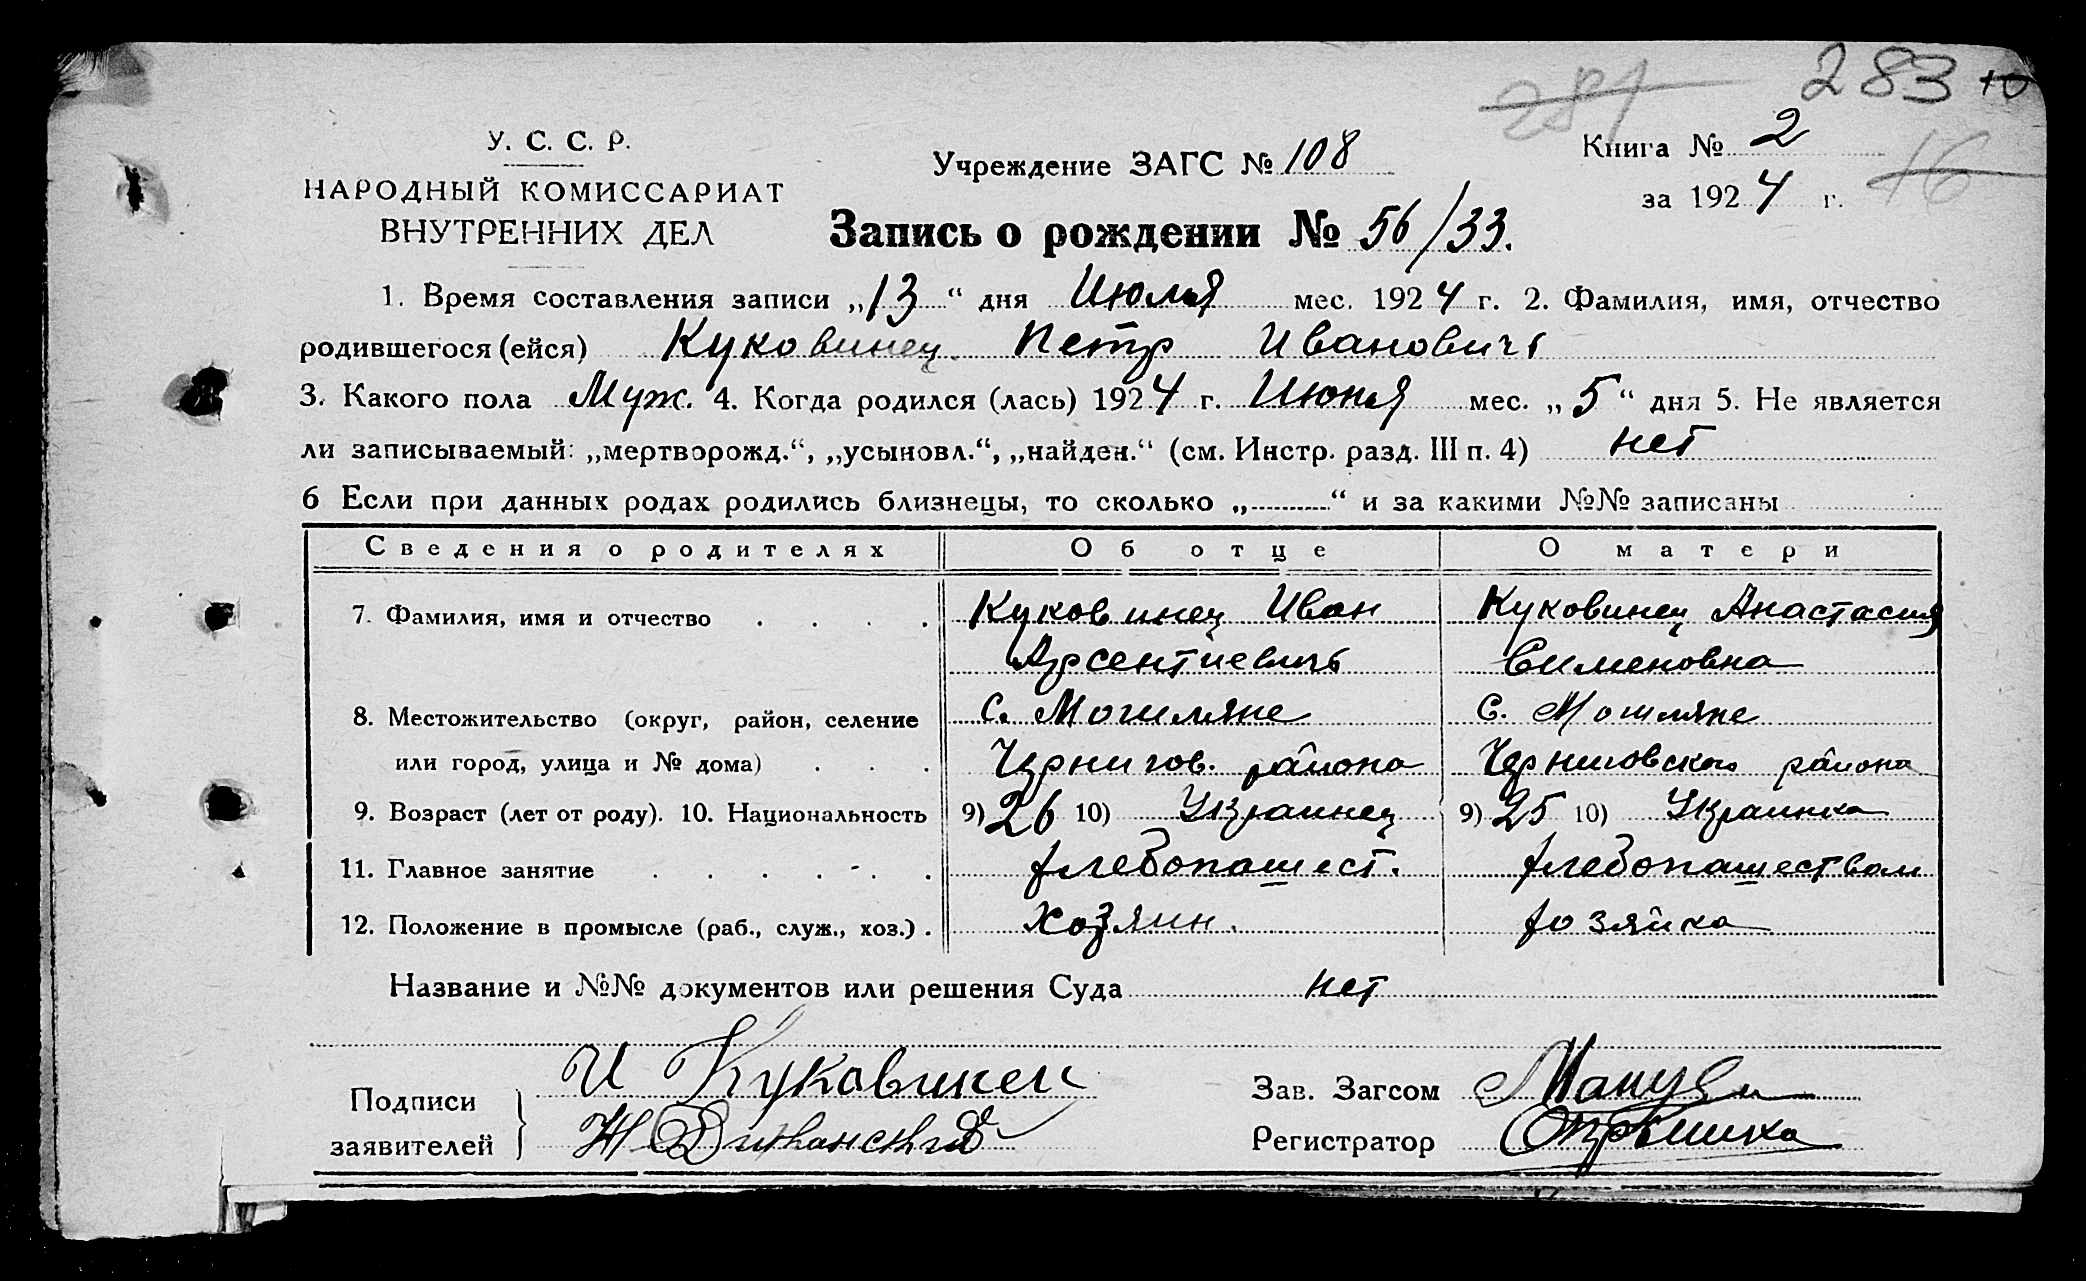 283 10
284
У. С. С. Р.
НАРОДНЫЙ КОМИССАРИАТ
ВНУТРЕННИХ ДЕЛ
Учреждение ЗАГС № 108
Книга № 2
за 1924 г.
16
Запись о рождении № 56/33.
1. Время составления записи „13“ дня Июля мес. 1924 г. 2. Фамилия, имя, отчество
родившегося (ейся) Куковинец Петр Ивановичъ
3. Какого пола Муж. 4. Когда родился (лась) 1924 г. Июня мес. „5“ дня 5. Не является
ли записываемый: „мертворожд.“, „усыновл.“, „найден.“ (см. Инстр. разд. III п. 4) нет
6 Если при данных родах родились близнецы, то сколько „..........“ и за какими №№ записаны
Сведения о родителях Об отце О матери
7. Фамилия, имя и отчество . . . . Куковинец Иван Куковинец Анастасия
Арсентиевичъ Сименовна
8. Местожительство (округ, район, селение с. Могиляне с. Могиляне
или город, улица и № дома) . . . Чернигов. района Черниговского района
9. Возраст (лет от роду). 10. Национальность 9) 26 10) Украинец 9) 25 10) Украинка
11. Главное занятие . . . . . . хлебопашест. хлебопашеством
12. Положение в промысле (раб., служ., хоз.) . Хозяин. хозяйка
Название и №№ документов или решения Суда нет
Подписи
заявителей
И Куковинец
Зав. Загсом
Регистратор